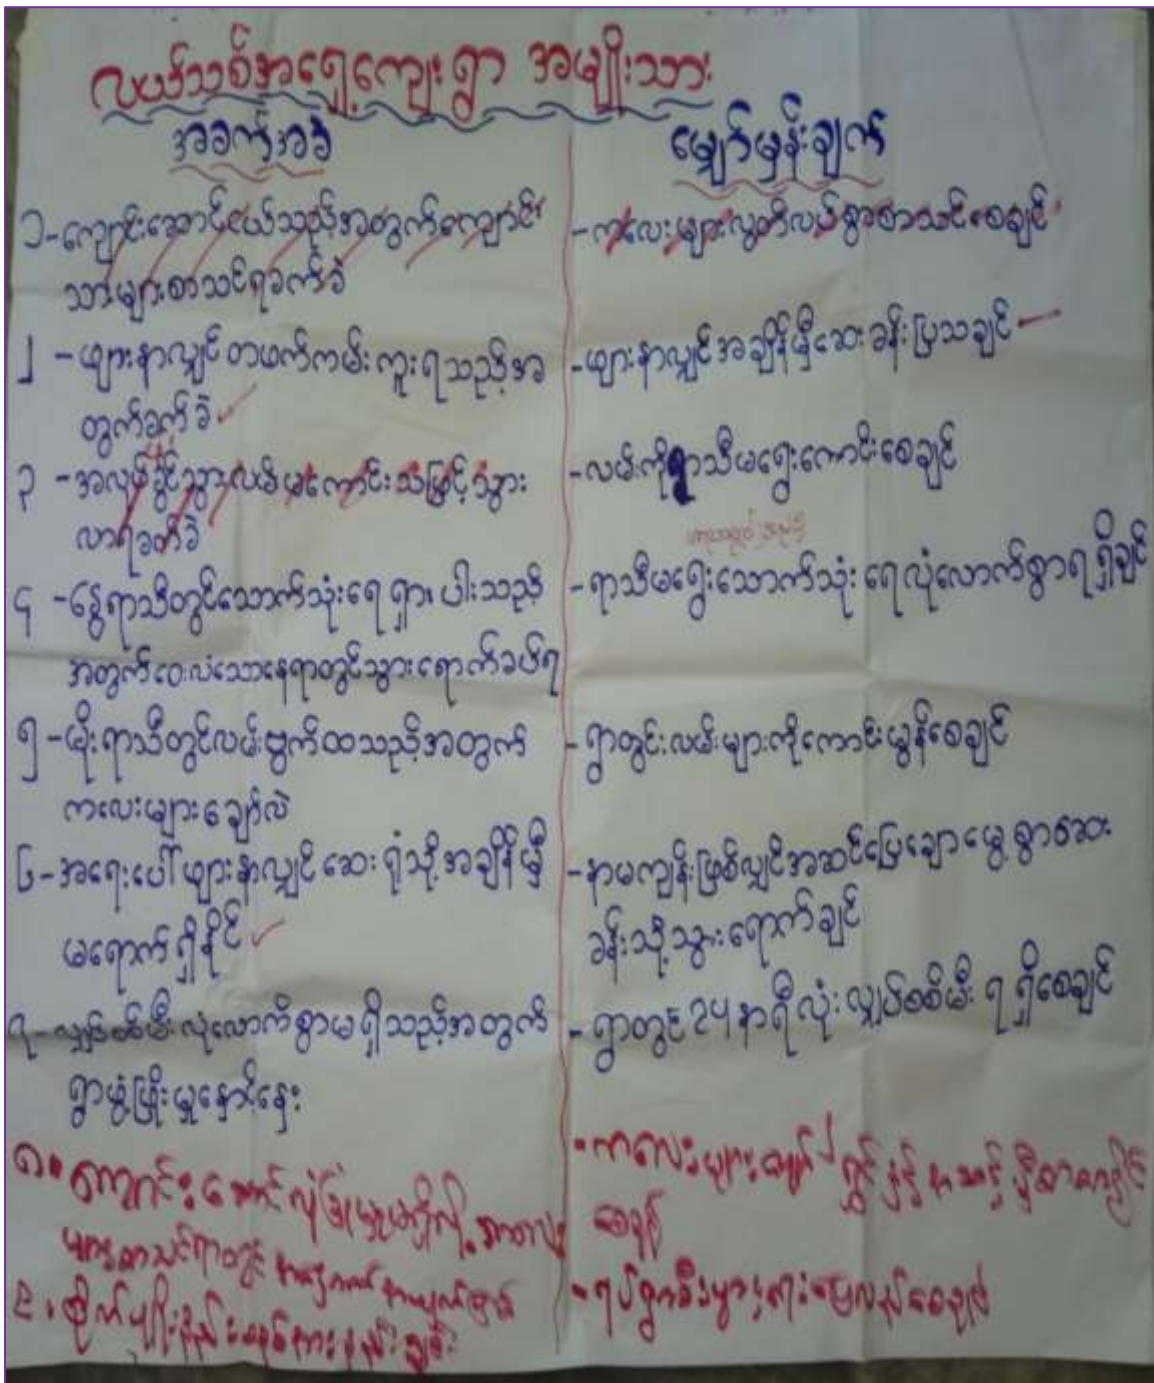 လယ်သစ်အရှေ့ကျေးရွာ အမျိုးသား
အခက်အခဲ
၁-ကျောင်းဆောင်ငယ်သည့်အတွက်ကျောင်း
သားများစာသင်ရခက်ခဲ
၂ -ဖျားနာလျှင်တဖက်ကမ်းကူးရသည့်အ
တွက်ခက်ခဲ
၃ -အလုပ်ခွင်သွားလမ်းမကောင်းသဖြင့်သွား
လာရခက်ခဲ
၄ -နွေရာသီတွင်သောက်သုံးရေရှားပါးသည့်
အတွက်ဝေးလံသောနေရာတွင်သွားရောက်ခပ်ရ
၅ -မိုးရာသီတွင်လမ်းဗွက်ထသည့်အတွက်
ကလေးများချော်လဲ
၆-အရေးပေါ်ဖျားနာလျှင်ဆေးရုံသို့အချိန်မှီ
မရောက်ရှိနိုင်
၇-လျှပ်စစ်မီးလုံလောက်စွာမရှိသည့်အတွက်
ရွာဖွံ့ဖြိုးမှုနှောင့်နှေး
၈။ ကျောင်းဆောင်လုံခြုံမှုမရှိလို့ ကလေး
များစာသင်ရာတွင်
၉။
မျှော်မှန်းချက်
-ကလေးများလွတ်လပ်စွာစာသင်စေချင်
-ဖျားနာလျှင်အချိန်မှီဆေးခန်းပြသချင်
-လမ်းကိုရာသီမရွေးကောင်းစေချင်
-ရာသီမရွေးသောက်သုံးရေလုံလောက်စွာရရှိချင်
-ရွာတွင်းလမ်းများကိုကောင်းမွန်စေချင်
-နာမကျန်းဖြစ်လျှင်အဆင်ပြေချောမွေ့စွာဆေး
ခန်းသို့သွားရောက်ချင်
-ရွာတွင်၂၄နာရီလုံးလျှပ်စစ်မီးရရှိစေချင်
-ကလေးများ
စေချင်
-ရပ်ရွာစီးပွားရေး